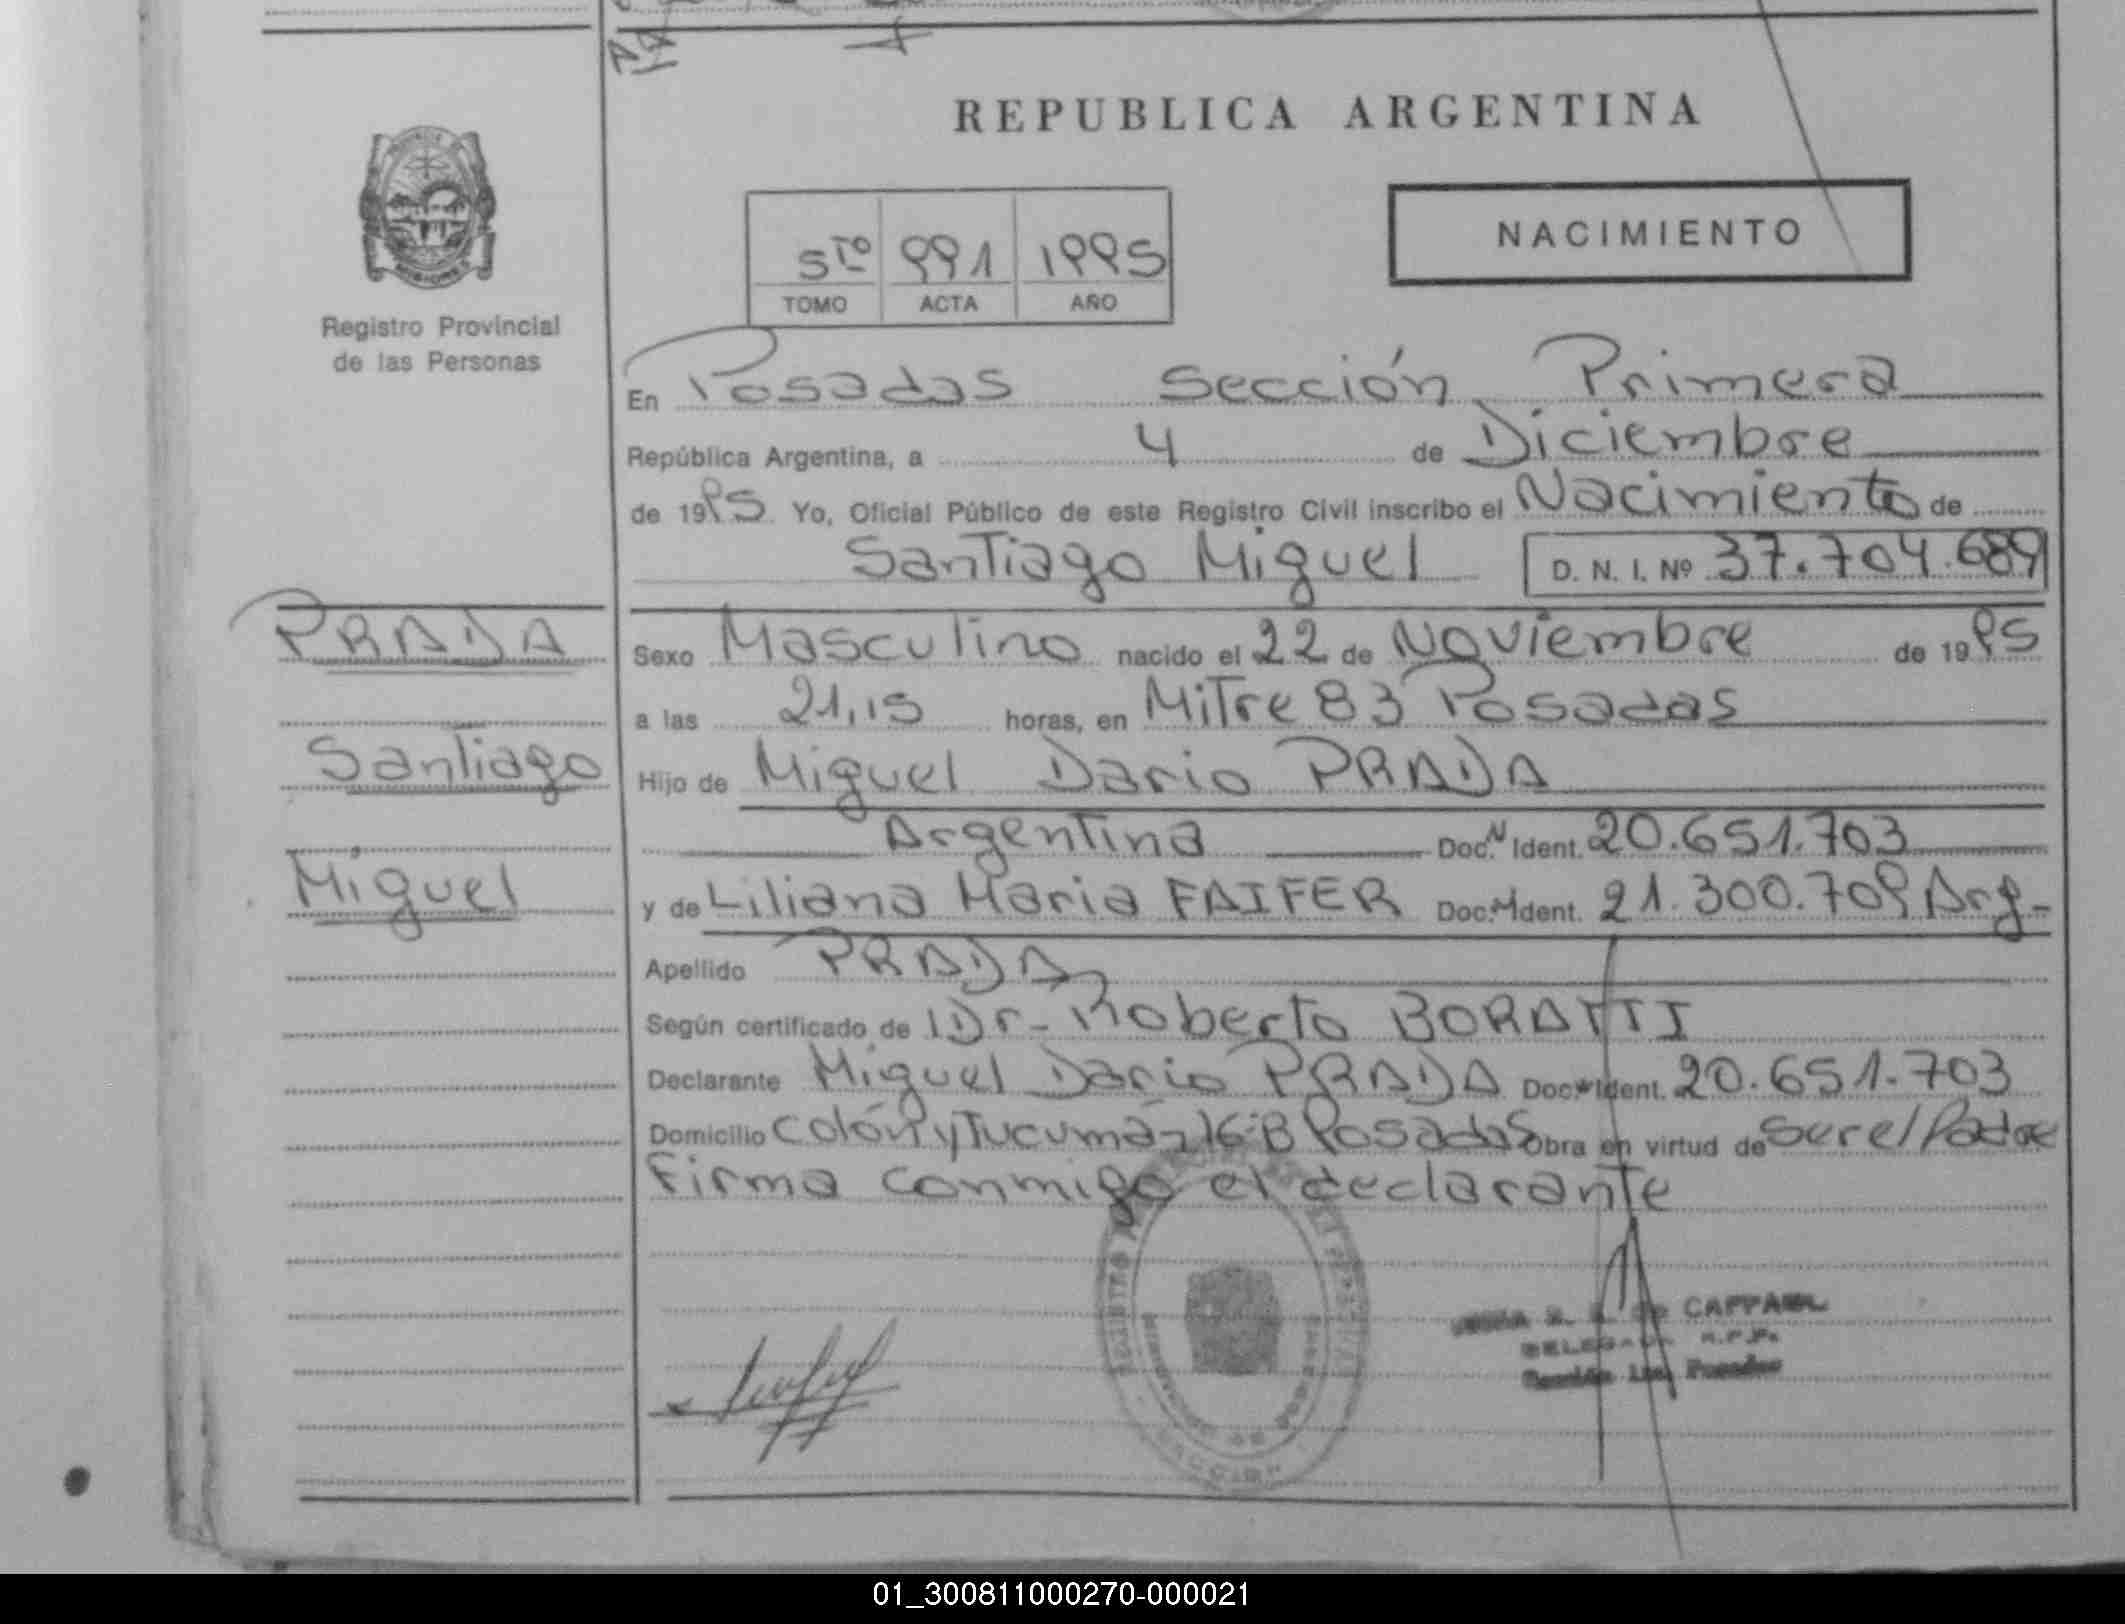 REPUBLICA ARGENTINA
NACIMIENTO
5to 991 1995
TOMO ACTA AÑO
Registro Provincial
de las Personas
En Posadas Sección Primera
República Argentina, a 4 de Diciembre
de 1995 Yo, Oficial Público de este Registro Civil inscribo el Nacimiento de
Santiago Miguel D. N. I. Nº 37.704.689
PRADA
Sexo Masculino nacido el 22 de Noviembre de 1995
a las 21,15 horas, en Mitre 83 Posadas
Santiago
Hijo de Miguel Dario PRADA
Argentina Doc. N Ident. 20.651.703
Miguel
y de Liliana Maria FAIFER Doc. N Ident. 21.300.709 Arg-
Apellido PRADA
Según certificado de Dr- Roberto BORATTI
Declarante Miguel Dario PRADA Doc. Ident. 20.651.703
Domicilio Colón y Tucumán 16-B Posadas Obra en virtud de Ser el Padre
Firma conmigo el declarante
de CAFFAREL
DELEGADA R.P.P.
Sección 1ra. Posadas
01_300811000270-000021